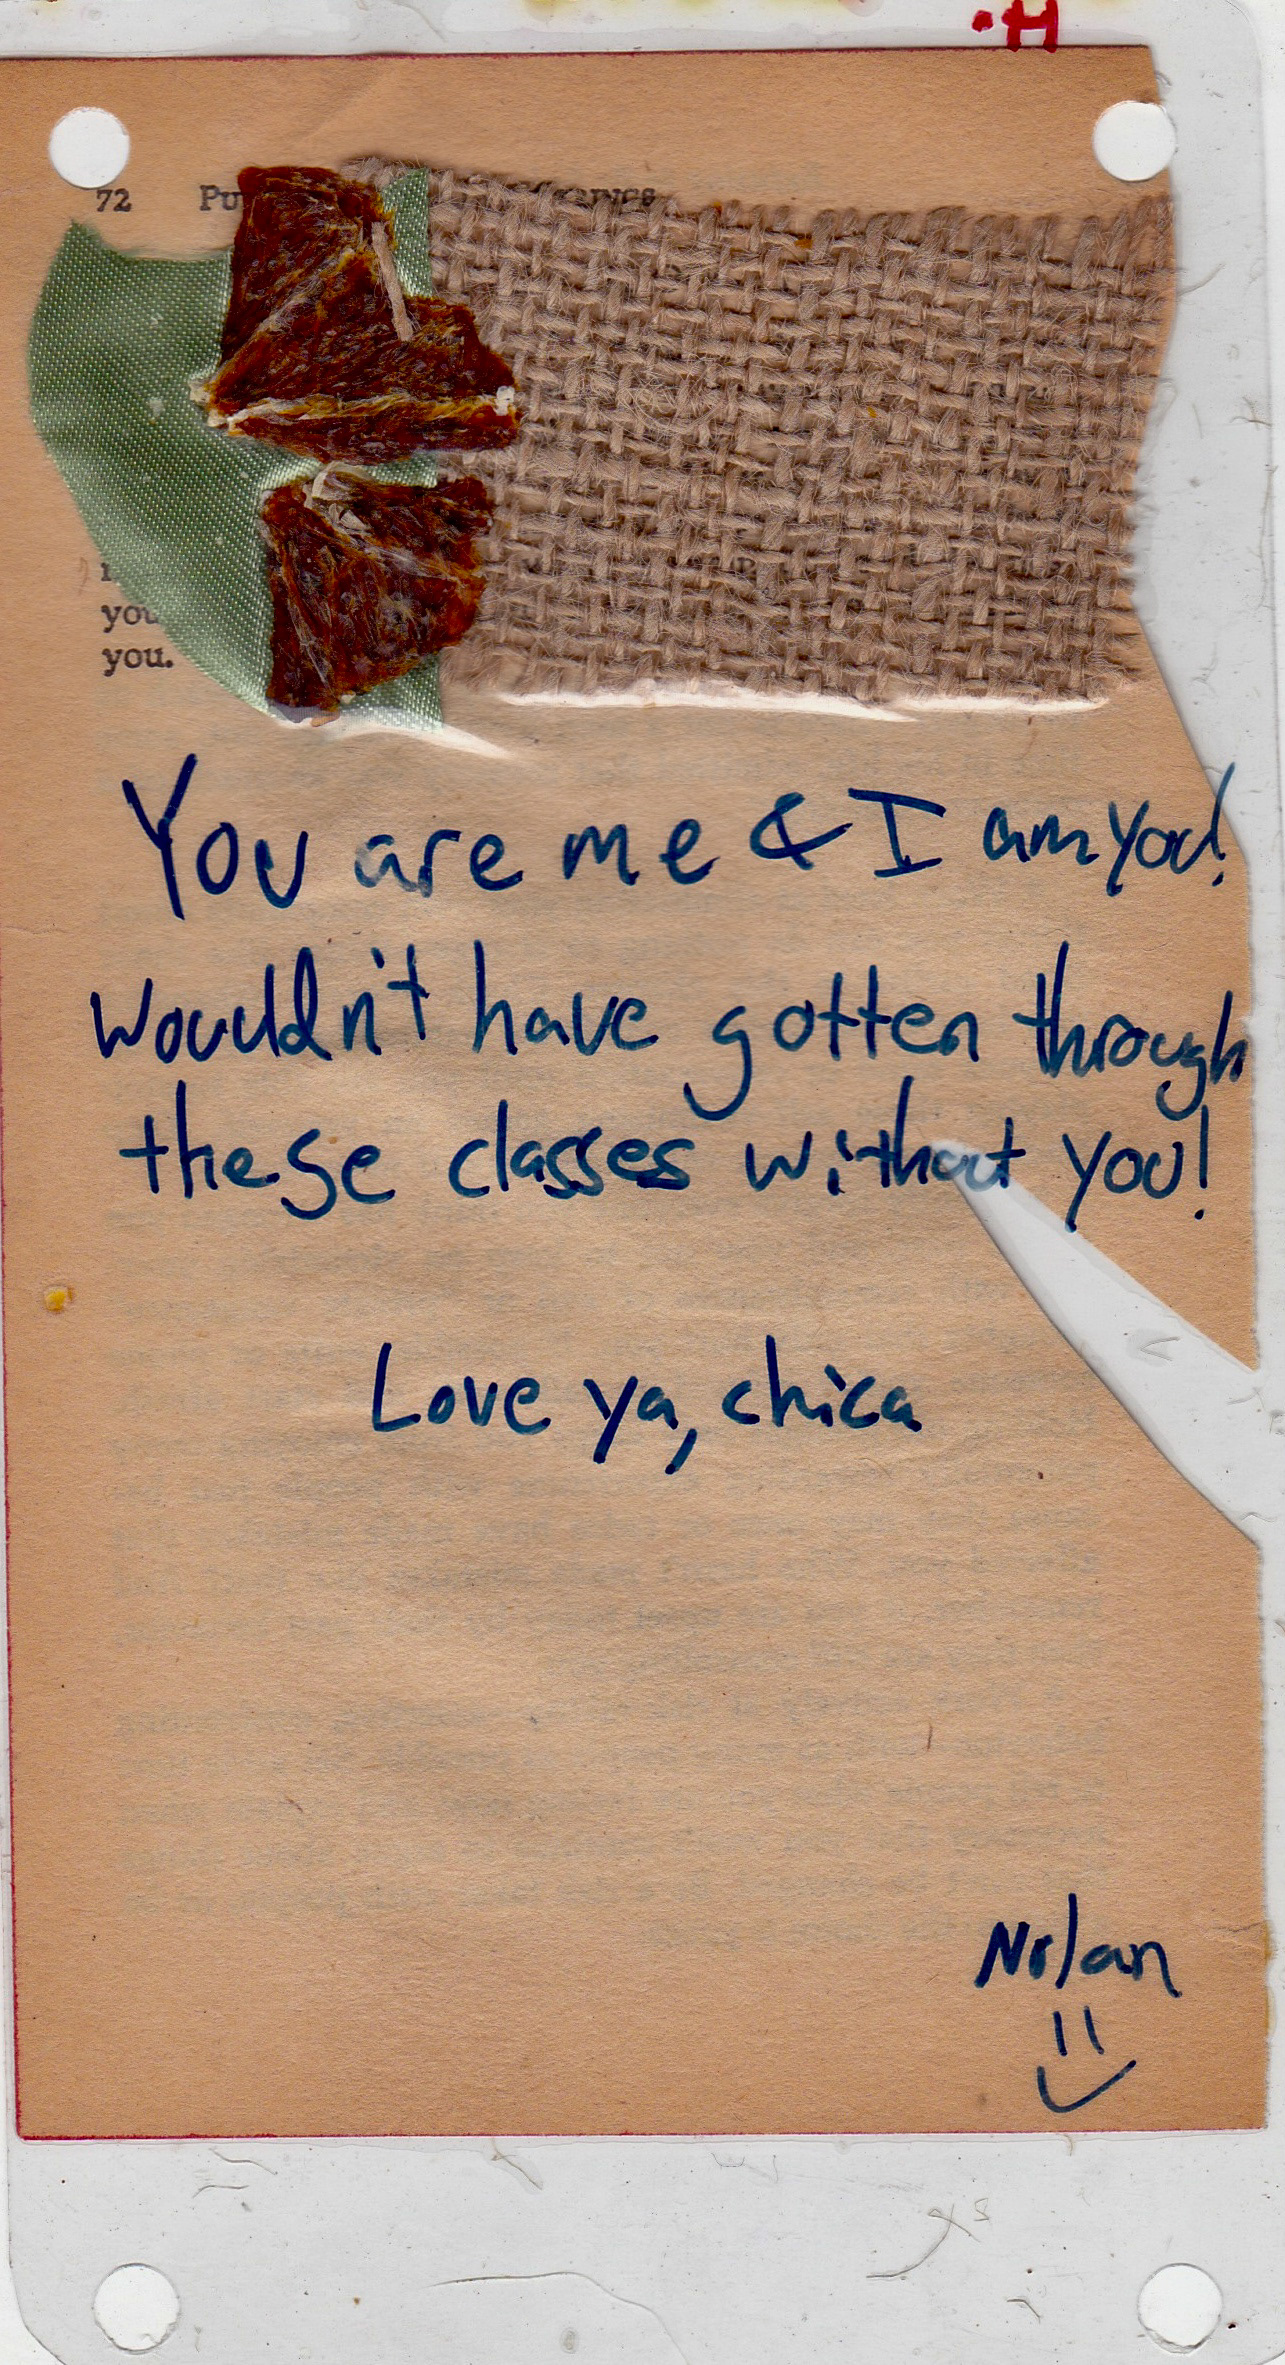 H.
72 Pu
you
you.
You are me & I am you!
Wouldn't have gotten through
these classes without you!
Love ya, chica
Nolan